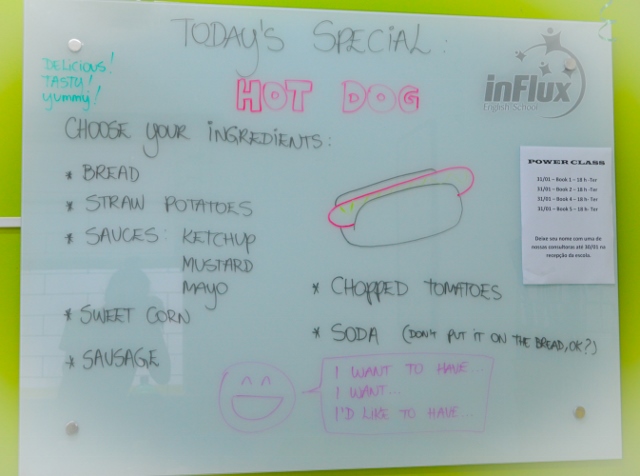 TODAY'S SPECIAL:
DELICIOUS!
TASTY!
YUMMY!
HOT DOG
inFlux
English School
CHOOSE YOUR INGREDIENTS:
* BREAD
* STRAW POTATOES
* SAUCES: KETCHUP
MUSTARD
MAYO
* SWEET CORN
* SAUSAGE
* CHOPPED TOMATOES
* SODA (DON'T PUT IT ON THE BREAD, OK?)
I WANT TO HAVE...
I WANT...
I'D LIKE TO HAVE...
POWER CLASS
31/01 – Book 1 – 18 h -Ter
31/01 – Book 2 – 18 h -Ter
31/01 – Book 4 – 18h- Ter
31/01 – Book 5 – 18h -Ter
Deixe seu nome com uma de
nossas consultoras até 30/01 na
recepção da escola.